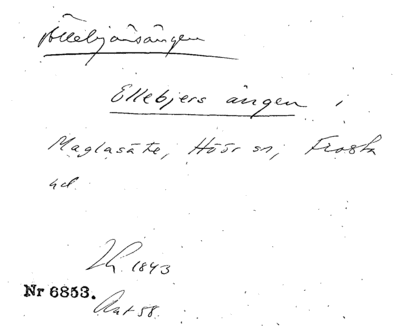 Ällebjärsängen
Ellebjers ängen i
Maglasäte, Höör sn, Frosta
hd
Lh. 1843
Nr 6853.
Akt 58.